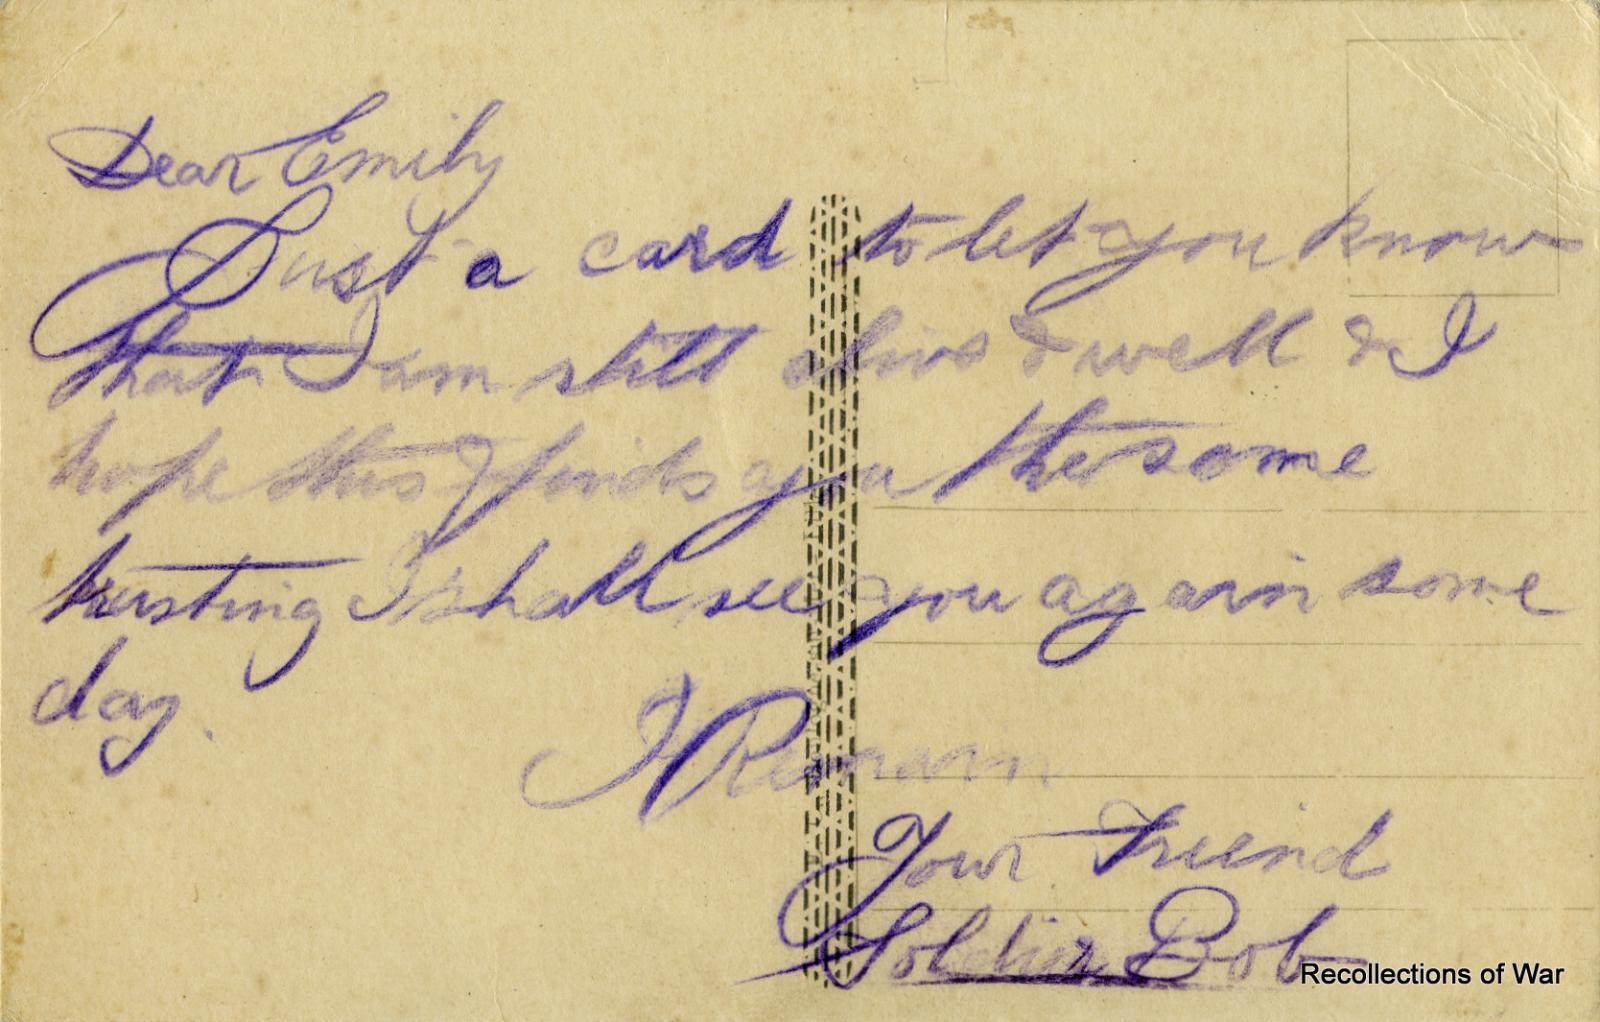 Dear Emily
Just a card to let you know
that I am still alive & well & I
hope this finds you the same
trusting I shall see you again some
day.
I Remain
Your Friend
Soldier Bob
Recollections of War